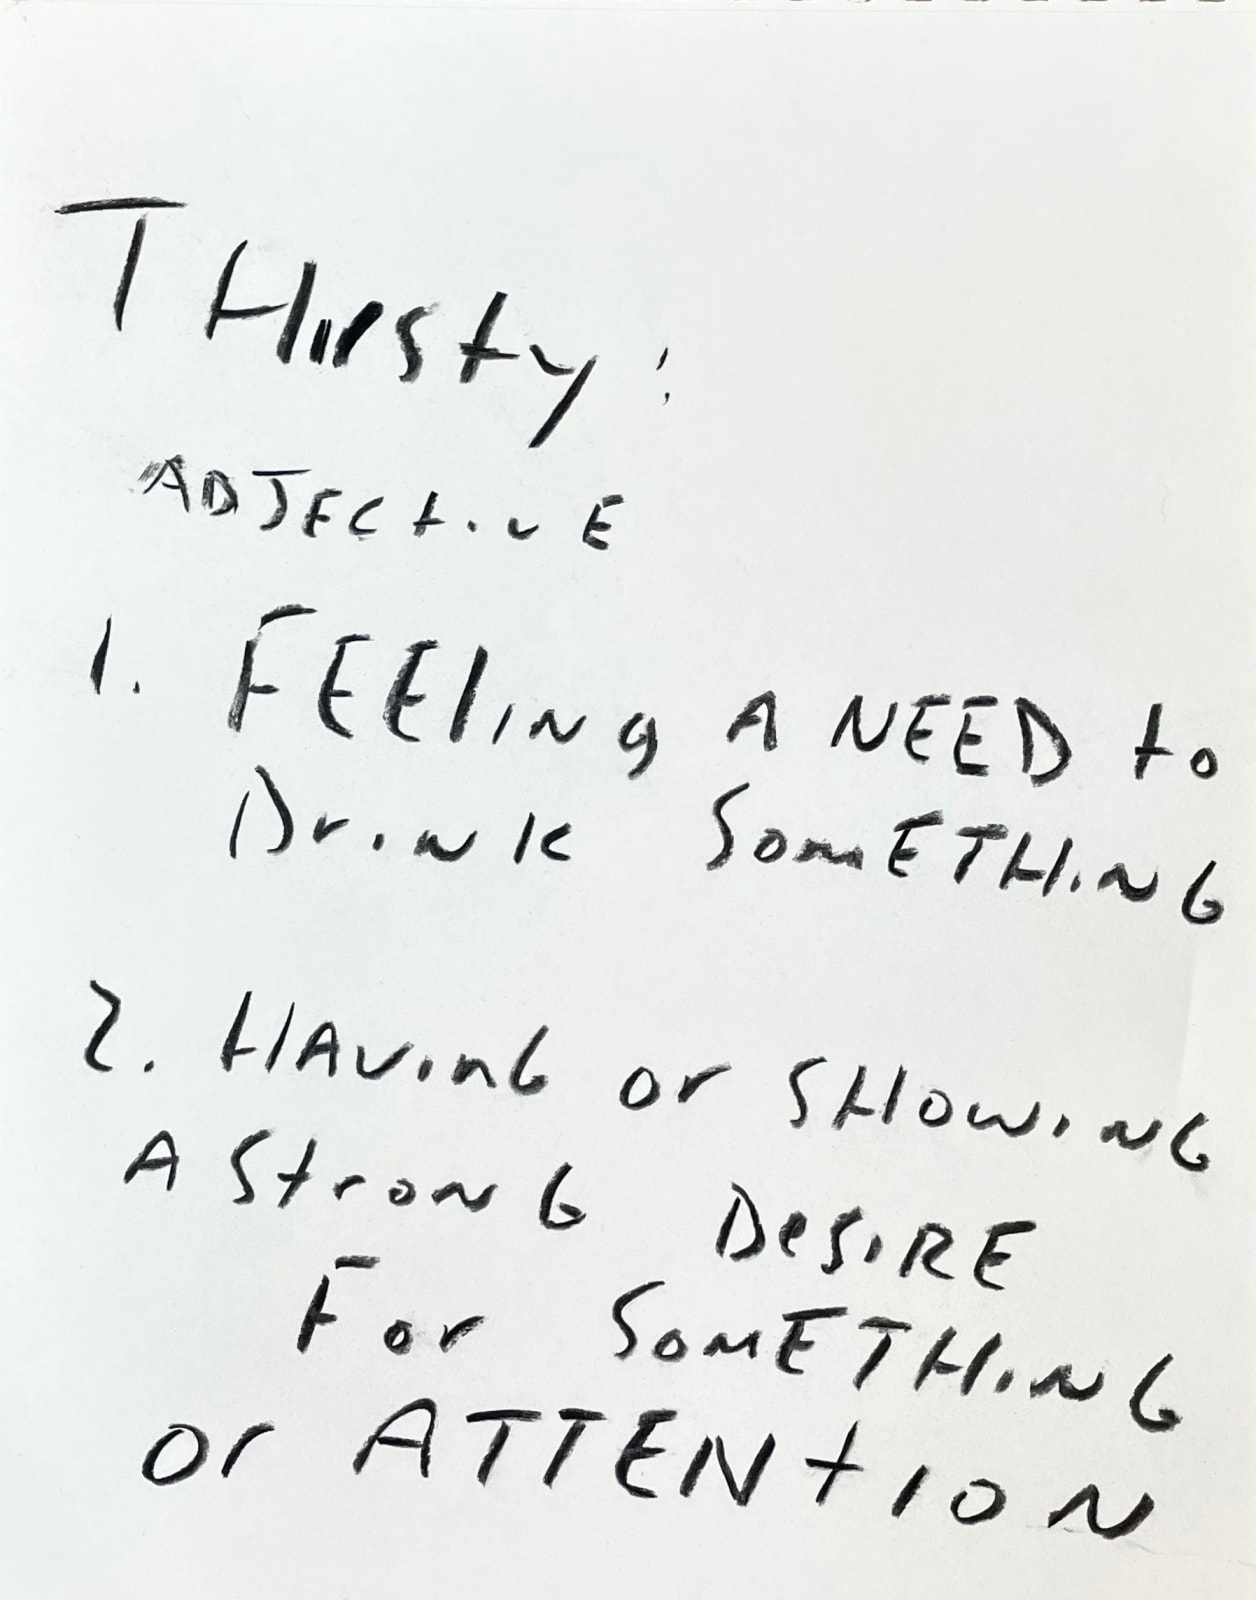 THirsty:
ADJECtivE
1. FEEling A NEED to
Drink SomETHiNG
2. HAvinG or SHowiNG
A StroNG DesiRE
For SomETHiNG
or ATTENtioN